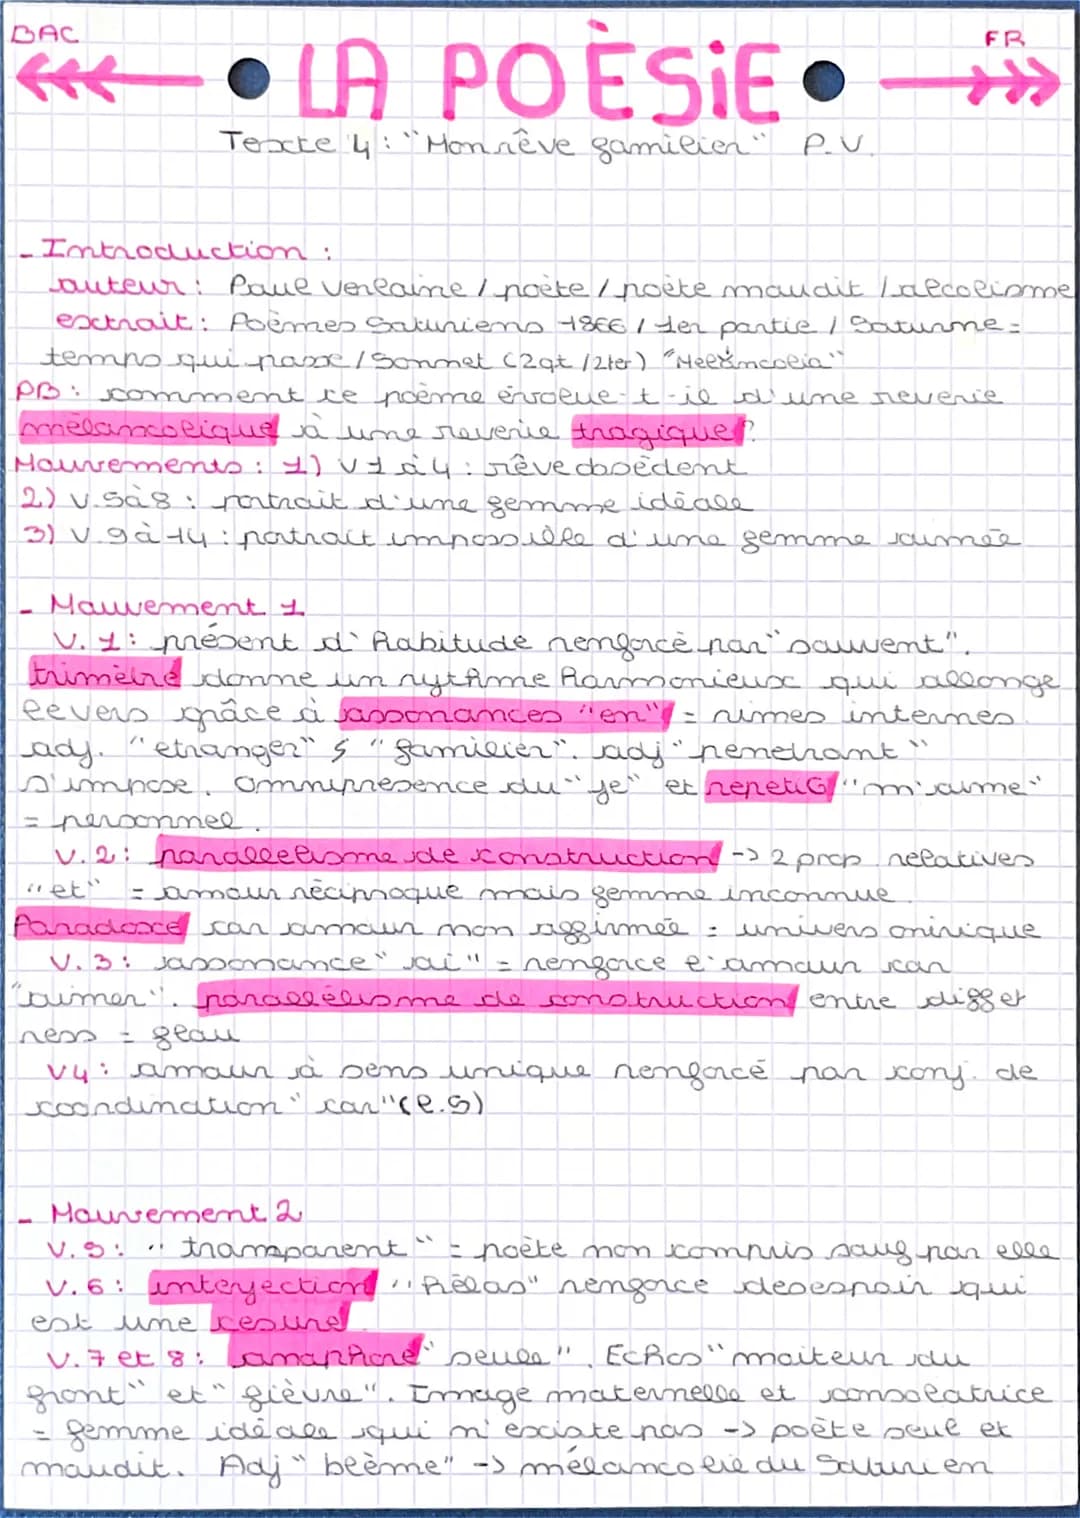 BAC
FR
LA POÈSiE
Texte 4 : "Mon rêve familier" P.V.
- Introduction :
auteur : Paul Verlaine / poète / poète maudit / alcolisme
extrait : Poèmes Saturniens 1866 / 1er partie / Saturne =
temps qui passe / Sonnet (2qt /2ter) "Melancolia"
PB : comment ce poème évolue-t-il d'une reverie
mélancolique à une reverie tragique ?
Mouvements : 1) V1 à 4 : rêve obsèdent
2) V.5 à 8 : portrait d'une femme idéale
3) V.9 à 14 : portrait impossible d'une femme aimée
- Mouvement 1
V. 1 : présent d'habitude renforcé par "souvent".
trimètre donne un rythme harmonieux qui allonge
le vers grâce à assonances "en" = rimes internes.
adj. "etranger" ≠ "familier". adj "penetrant"
s'impose. Omnipresence du "je" et repetit° "m'aime"
= personnel.
V. 2 : parallelisme de construction -> 2 prop. relatives
"et" = amour réciproque mais femme inconnue.
Paradoxe car amour non affirmée = univers onirique
V. 3 : assonance "ai" = renforce l'amour car
"aimer". parallélisme de construction entre diff et
ress = flou
V4 : amour à sens unique renforcé par conj. de
coordination "car" (l.5)
- Mouvement 2
V. 5 : "transparent" = poète non compris sauf par elle
V. 6 : interjection "hélas" renforce desespoir qui
est une césure.
V. 7 et 8 : anaphore "seule". Echos "moiteur du
front" et "fièvre". Image maternelle et consolatrice
= femme idéale qui n'existe pas -> poète seul et
maudit. Adj "blème" -> mélancolie du Saturnien